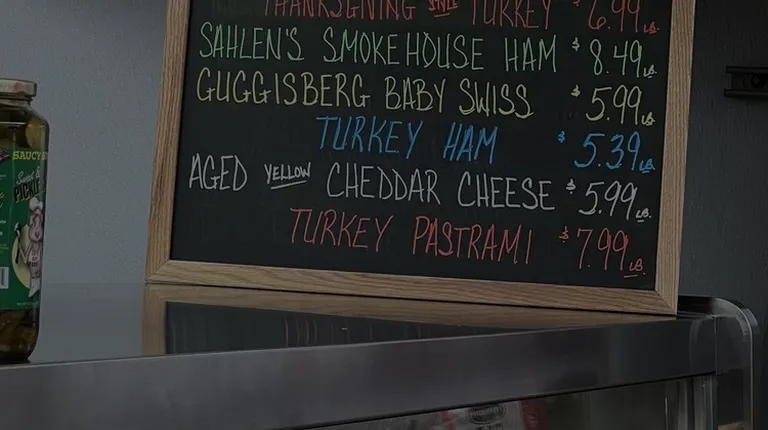 THANKSGIVING STYLE TURKEY $6.99 LB.
SAHLEN'S SMOKEHOUSE HAM $8.49 LB.
GUGGISBERG BABY SWISS $5.99 LB.
TURKEY HAM $5.39 LB.
AGED YELLOW CHEDDAR CHEESE $5.99 LB.
TURKEY PASTRAMI $7.99 LB.
SAUCY
PICKLE